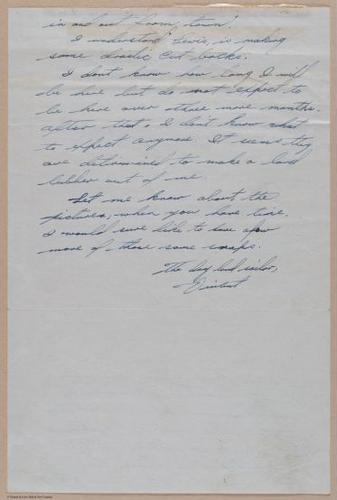 in and out "boom" town!
I understand Lewis, is making
some drastic cut backs.
I don't know how long I will
be here but do not expect to
be here over three more months.
After that, I don't know what
to expect anymore. It seems they
are determined to make a land
lubber out of me.
Let me know about the
pictures, when you have time.
I would sure like to have a few
more of those same snaps.
The dry land sailor,
Vincent